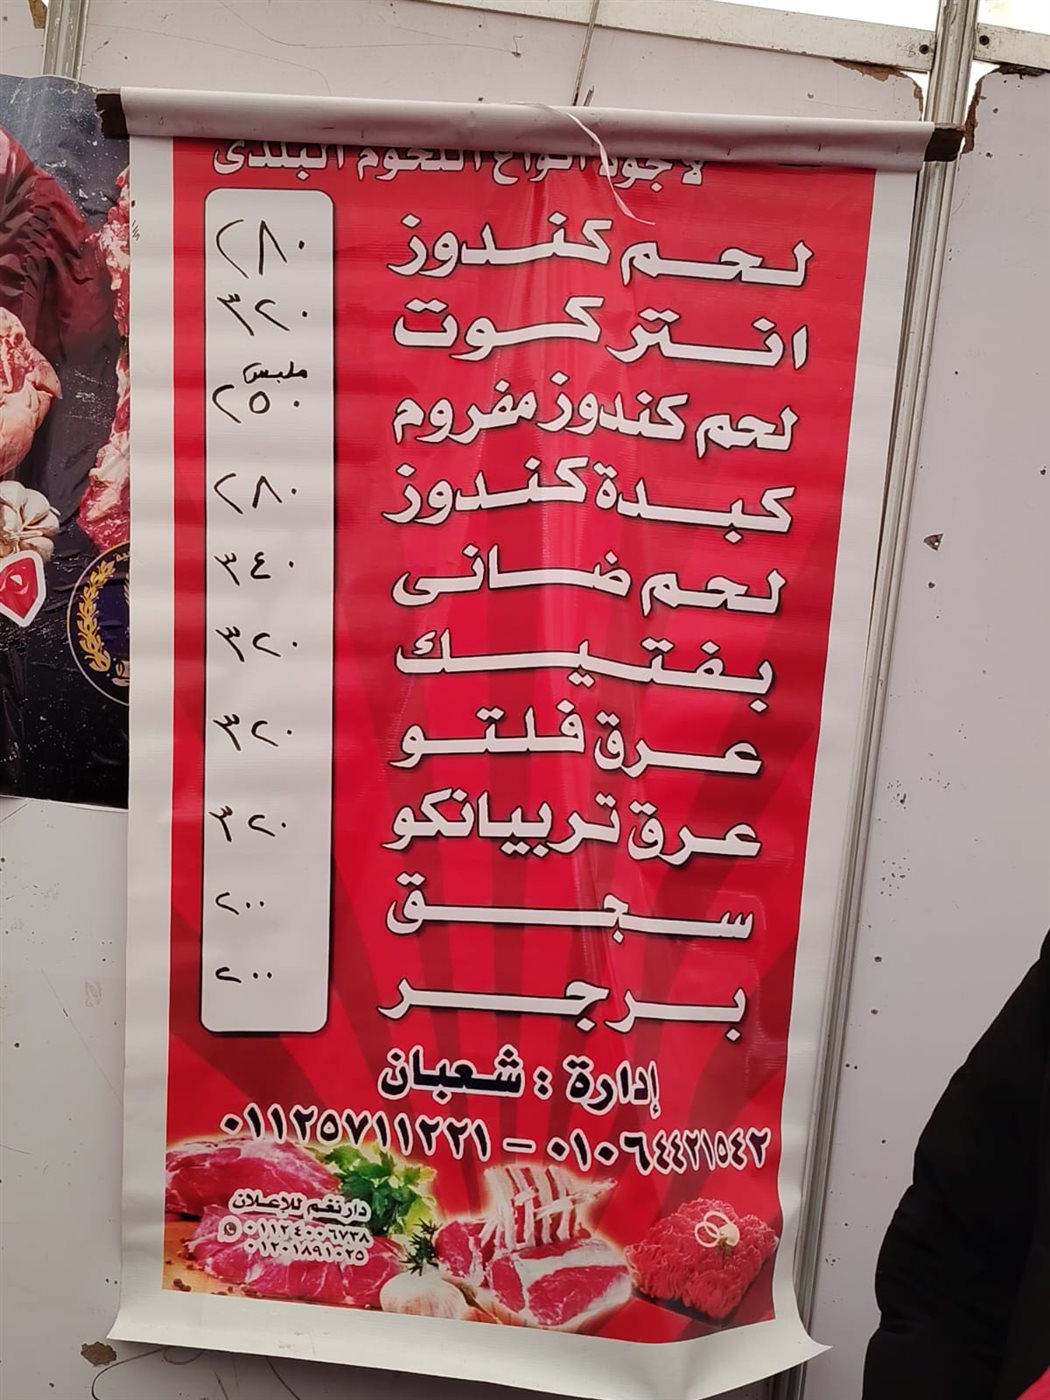 لأجود أنواع اللحوم البلدى
لحم كندوز ٢٨٠
انتر كوت ٣٢٠
ملبس
لحم كندوز مفروم ٢٥٠
كبدة كندوز ٢٨٠
لحم ضانى ٣٤٠
بفتيك ٣٢٠
عرق فلتو ٣٢٠
عرق تربيانكو ٣٢٠
سجق ٢٠٠
برجر ٢٠٠
إدارة : شعبان
٠١١٢٥٧١١٢٢١ - ٠١٠٦٤٤٢١٥٤٢
دار نغم للإعلان
٠١١٢٤٠٠٦٧٣٨
٠١٢٠١٨٩١٠٢٥